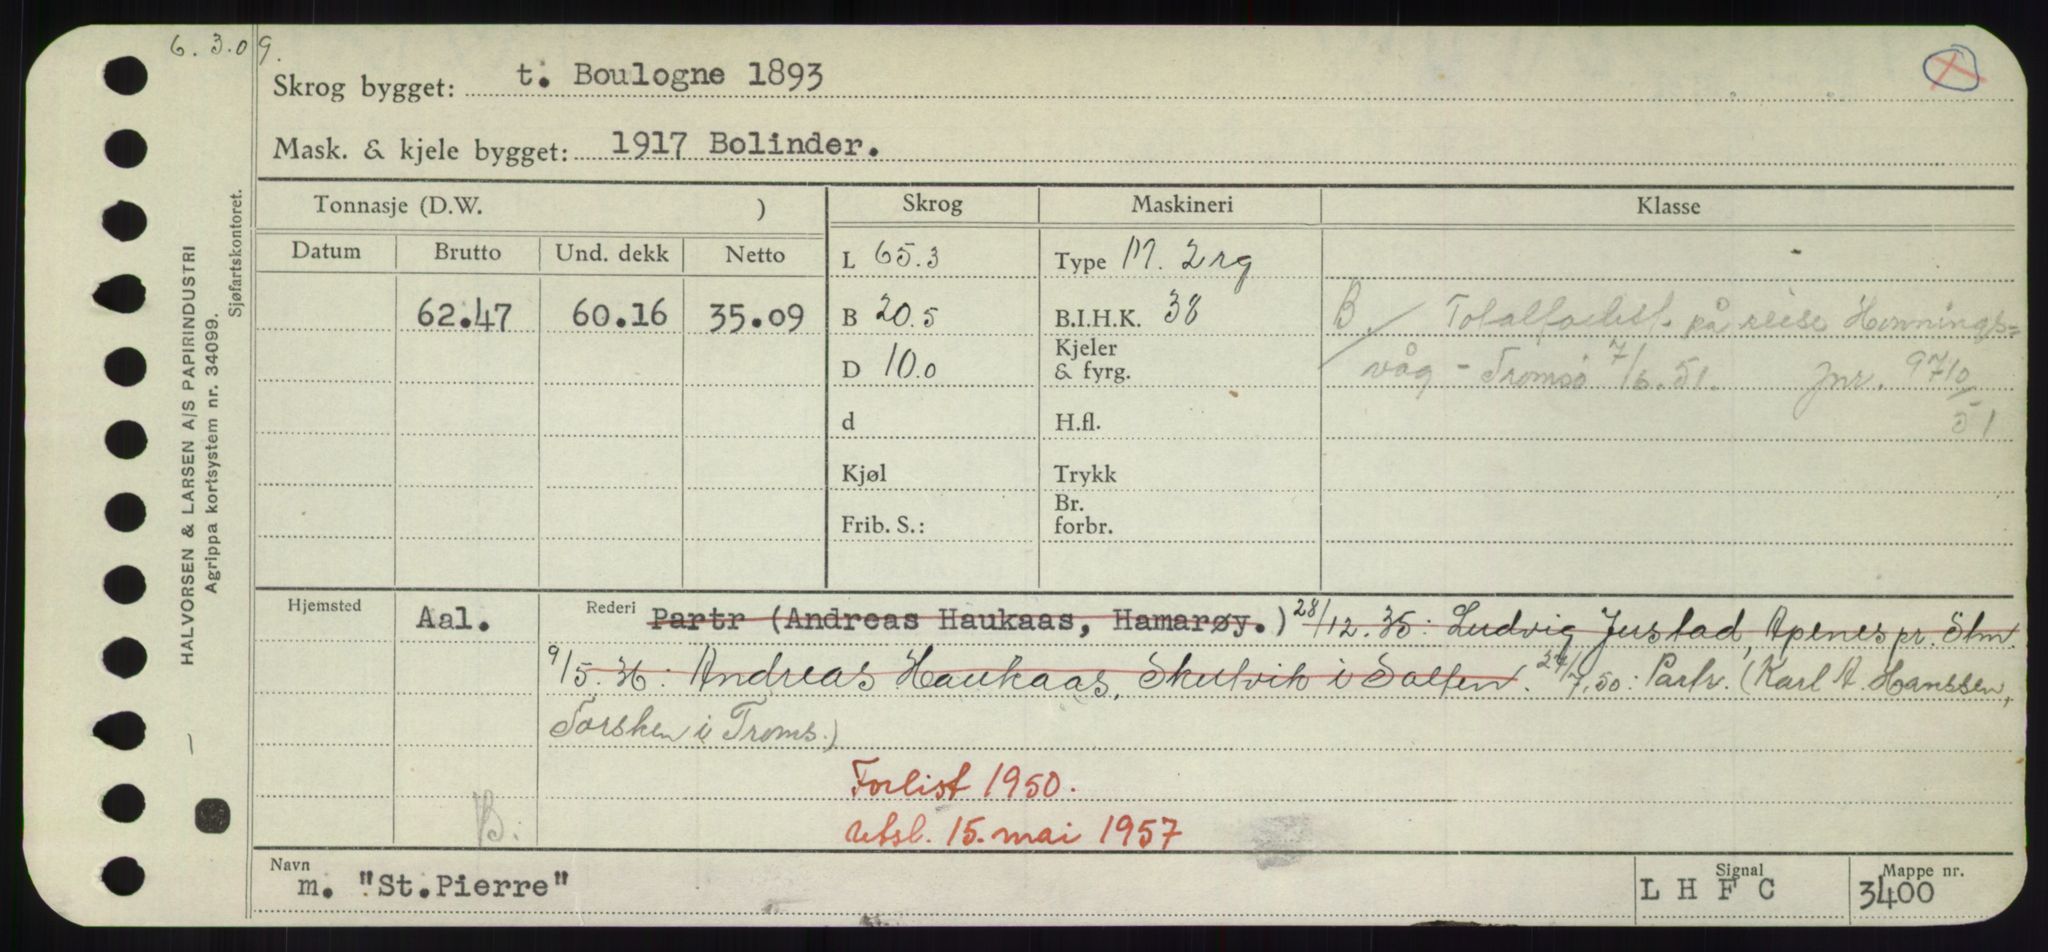 6.3.09.
Skrog bygget: t. Boulogne 1893
Mask. & kjele bygget: 1917 Bolinder.
HALVORSEN & LARSEN A/S PAPIRINDUSTRI
Agrippa kortsystem nr. 34099.
Sjøfartskontoret.
Tonnasje (D.W. ) Skrog Maskineri Klasse
Datum Brutto Und. dekk Netto L 65.3 Type M. 2 rg
62.47 60.16 35.09 B 20.5 B.I.H.K. 38 B/ Totalforlist. på reise Hønnings=
D 10.0 Kjeler & fyrg. våg - Tromsø 7/6.51. Jnr. 9710/51
d H.fl.
Kjøl Trykk
Frib. S.: Br. forbr.
Hjemsted Aal. Rederi Partr (Andreas Haukaas, Hamarøy.) 28/12.35: Ludvig Justad, Apenes pr. Stm.
9/5.36: Andreas Haukaas, Skutvik i Salten. 24/7.50: Partr. (Karl A. Hanssen,
Torsken i Troms.)
Forlist 1950.
B. utsl. 15. mai 1957
Navn m. "St.Pierre" Signal L H F C Mappe nr. 3400